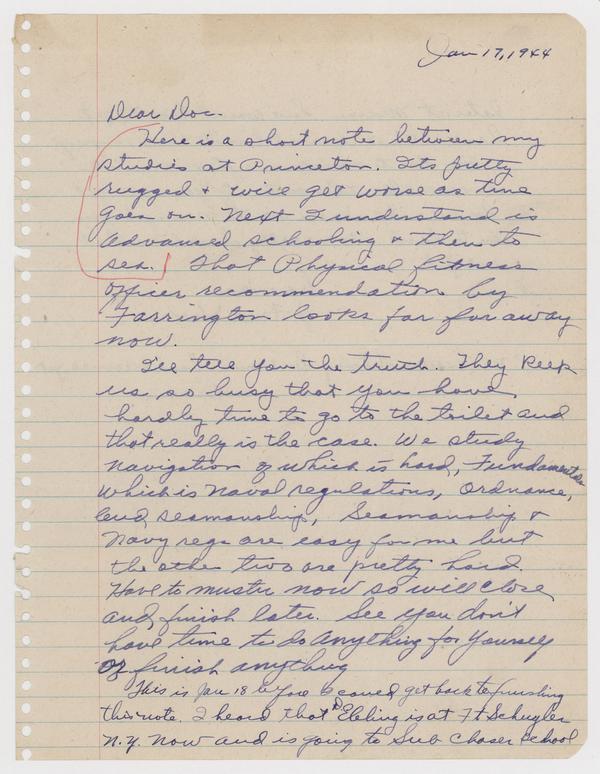 Jan 17, 1944
Dear Doc.
Here is a short note between my
studies at Princeton. Its pretty
rugged & will get worse as time
goes on. Next I understand is
advanced schooling & then to
sea. That Physical fitness
officer recommendation by
Farrington looks far far away
now.
I'll tell you the truth. They keep
us so busy that you have
hardly time to go to the toilit and
that really is the case. We study
Navigation of which is hard, Fundamentals
which is Naval regulations, Ordnance,
and seamanship, Seamanship &
Navy regs are easy for me but
the other two are pretty hard.
Have to muster now so will close
and finish later. See you don't
have time to do anything for yourself
or finish anything
This is Jan 18 before I could get back to finishing
this note. I heard that Ebeling is at Ft Schuyler
N.Y. Now and is going to Sub Chaser School